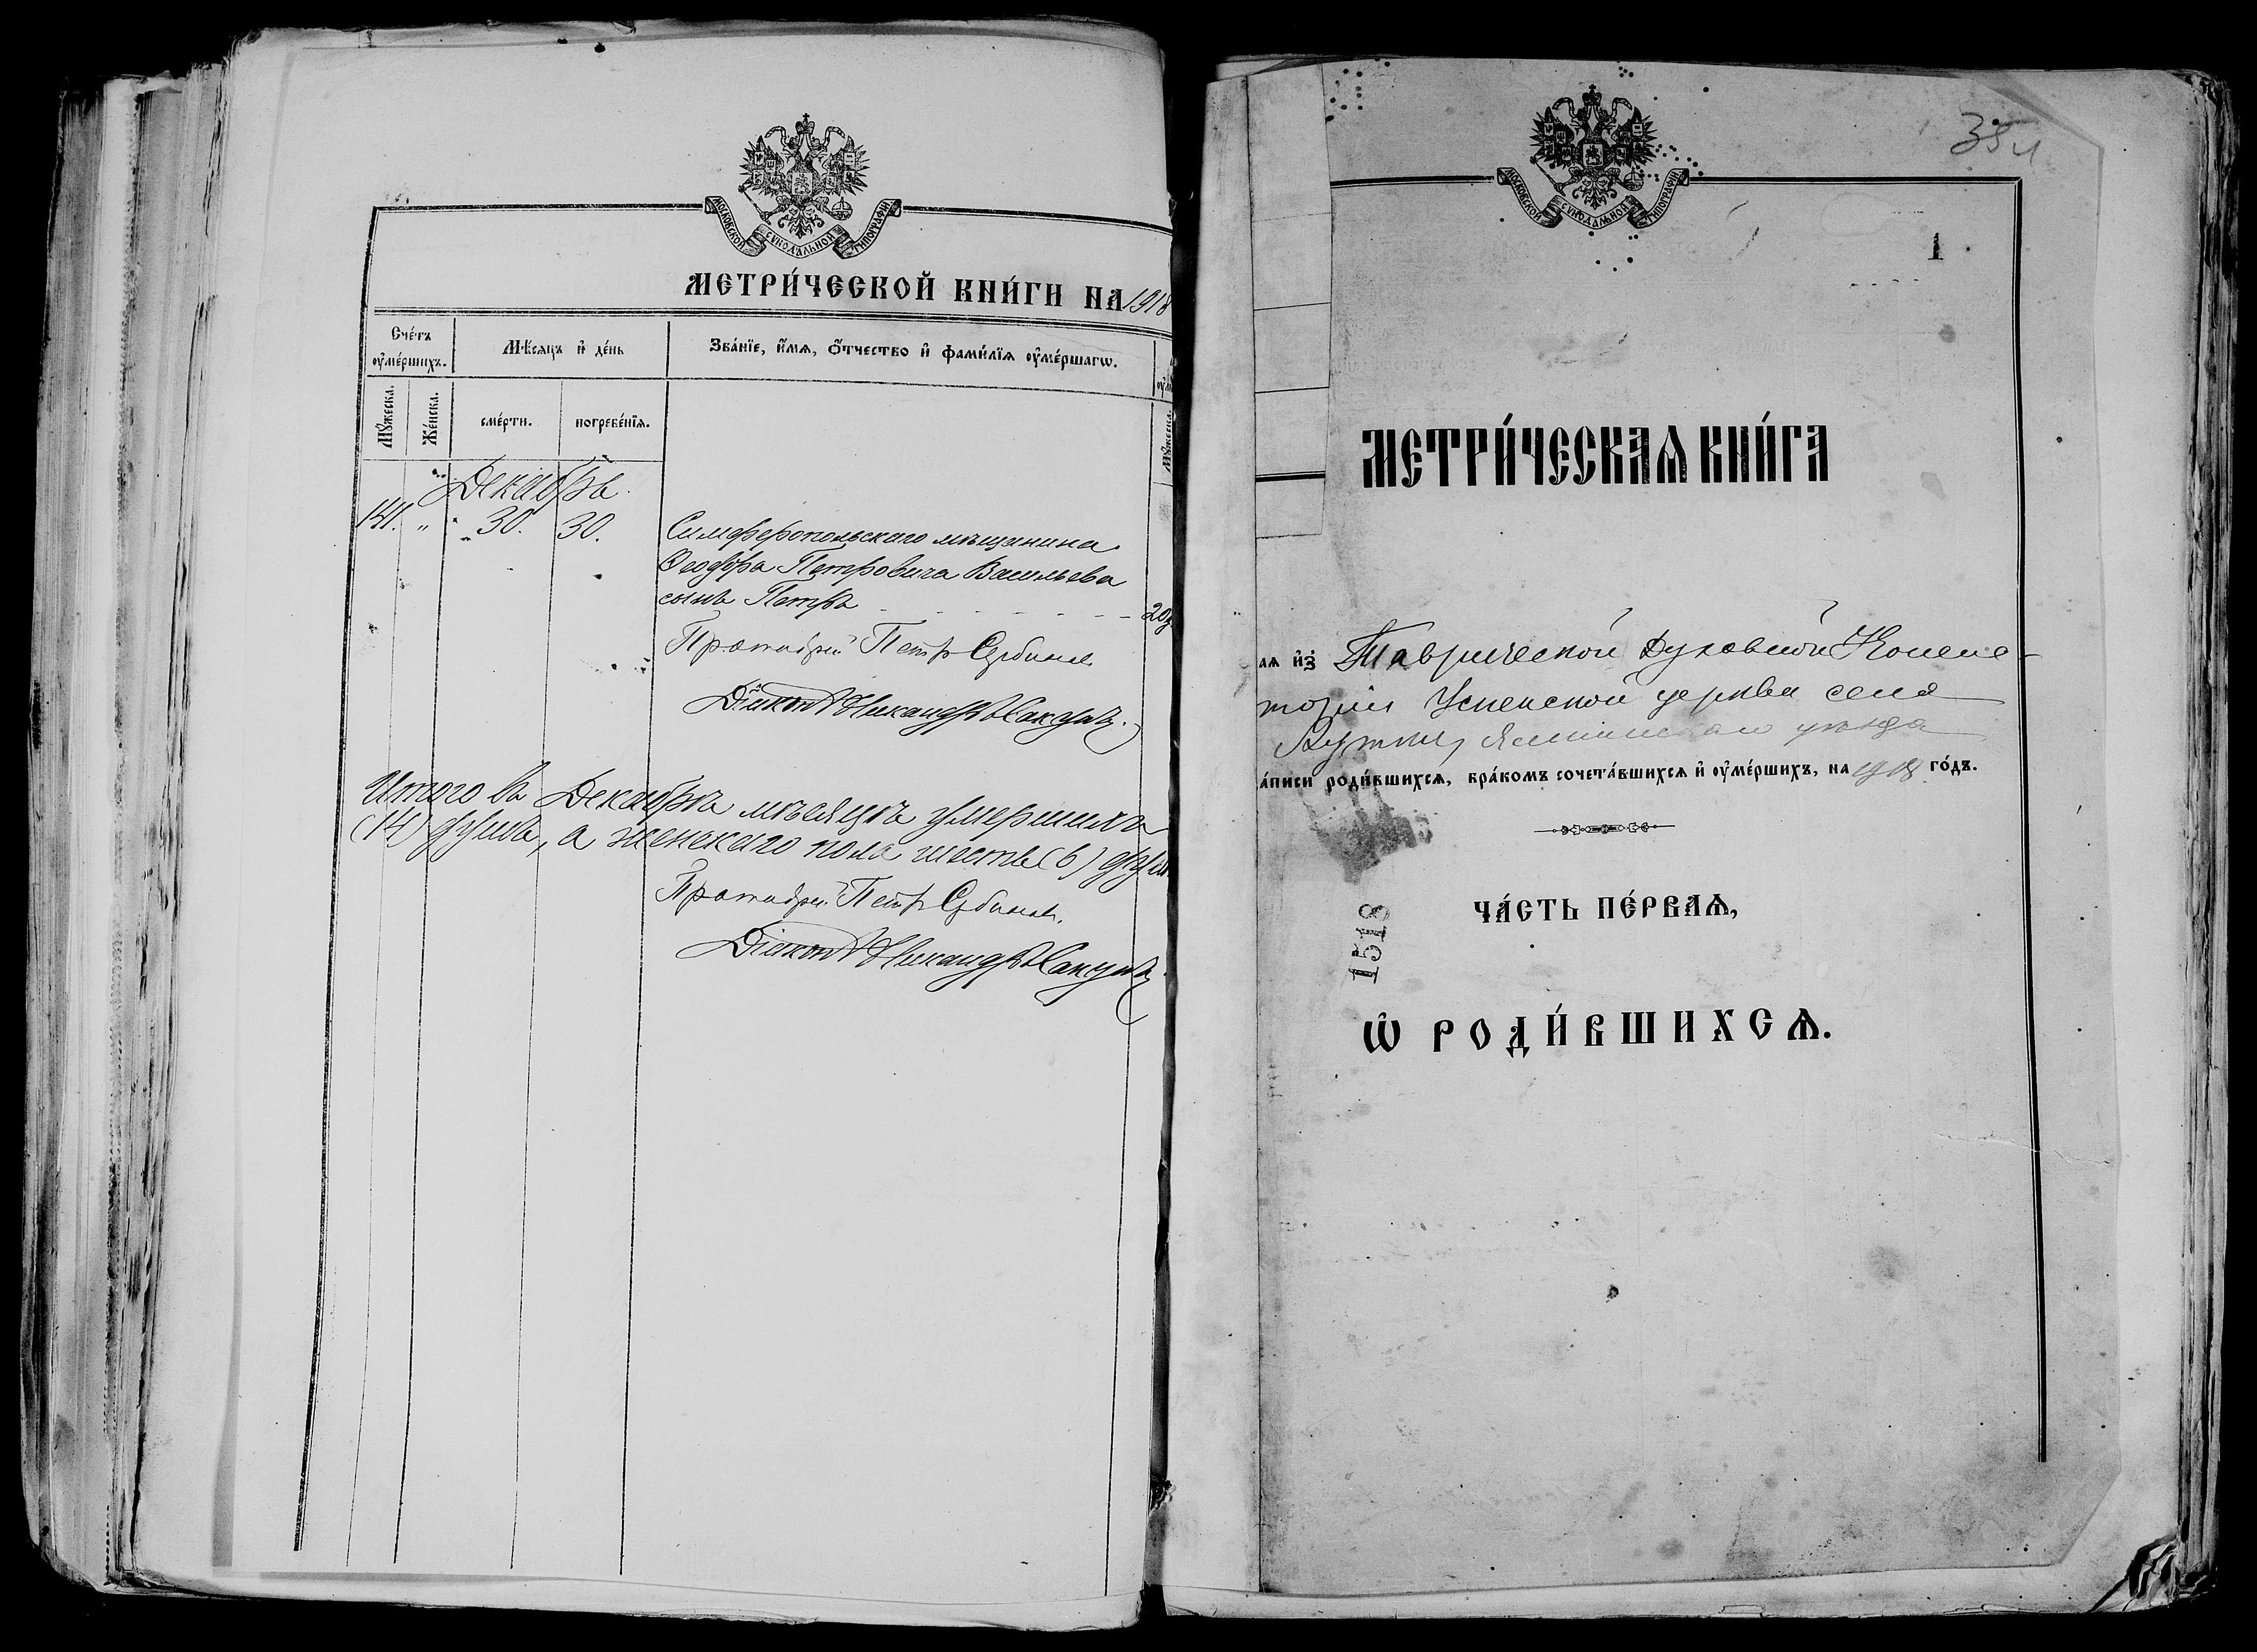 МОСКОВСКОЙ СѴНОДАЛЬНОЙ ТИПОГРАФІИ
МЕТРИ́ЧЕСКОЙ КНИ́ГИ НА 1918
Сче́тъ ᲂу҆ме́ршихъ.
Мѣ́сяцъ и҆ де́нь
Зва́нїе, и҆́мѧ, ѻ҆́тчество и҆ фами́лїѧ ᲂу҆ме́ршагѡ.
Мꙋ́жеска.
Же́нска.
сме́рти.
погребе́нїѧ.
Декабрь.
141. " 30. 30. Симферопольскаго мѣщанина
Ѳеодора Петровича Васильева
сынъ Петръ
Протоіерей Петръ Сербиновъ
Діаконъ Никандръ Сакунъ.
Итого въ Декабрѣ мѣсяцѣ умершихъ
(14) душъ, а женскаго пола шесть (6) душъ
Протоіерей Петръ Сербиновъ.
Діаконъ Никандръ Сакунъ
35
МОСКОВСКОЙ СѴНОДАЛЬНОЙ ТИПОГРАФІИ
1
МЕТРИ́ЧЕСКАѦ КНИ́ГА
аѧ и҆з̾ Таврической Духовной Консис-
торіи Успенской церкви села
Ялтинскаго уѣзда
а́писи роди́вшихсѧ, бра́комъ сочета́вшихсѧ и҆ ᲂу҆ме́ршихъ, на 1918 го́дъ.
ЧА́СТЬ ПЕ́РВАѦ,
1518
Ѡ҆ РОДИ́ВШИХСѦ.